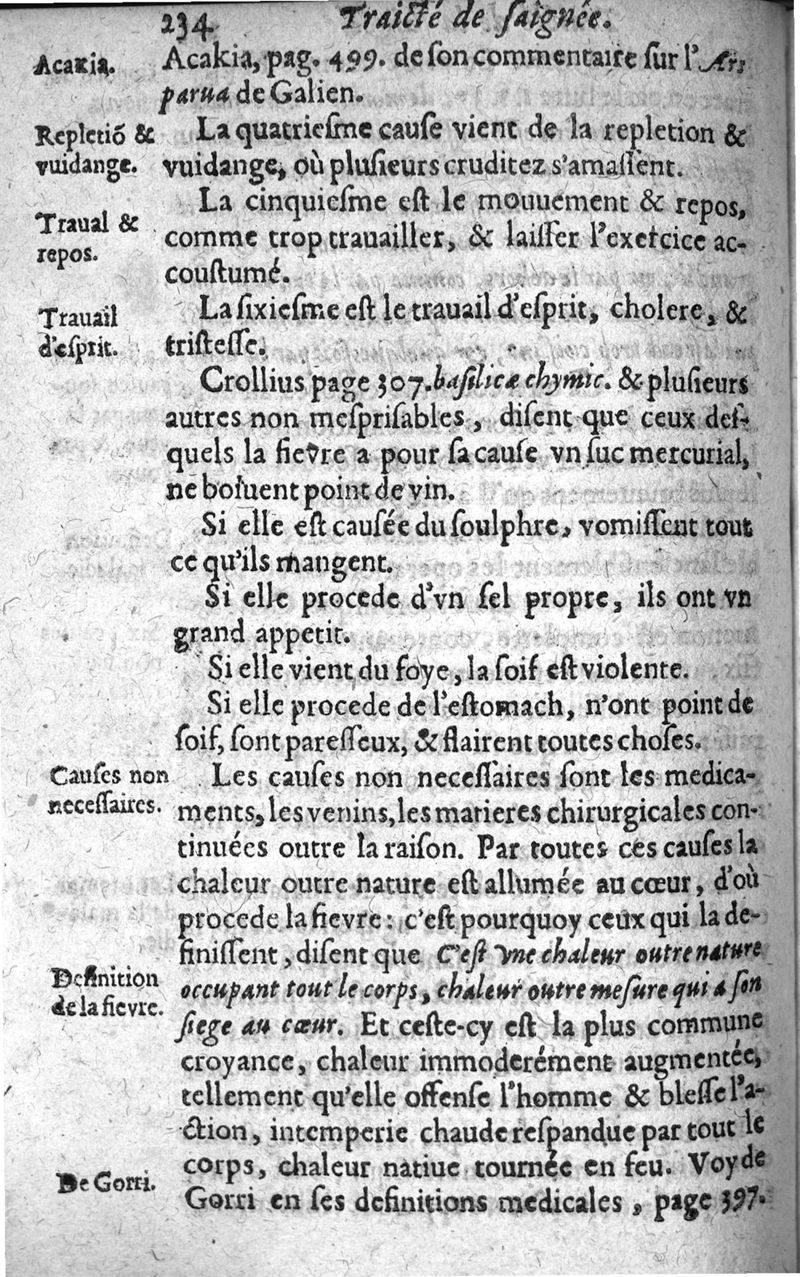 234 Traicté de ſaignée.
Acakia.
Acakia, pag. 499. de ſon commentaire ſur l'Ars
parua de Galien.
Repletiõ &
vuidange.
La quatrieſme cauſe vient de la repletion &
vuidange, où pluſieurs cruditez s'amaſſent.
Traual &
repos.
La cinquieſme eſt le mouuement & repos,
comme trop trauailler, & laiſſer l'exercice ac-
couſtumé.
Trauail
d'eſprit.
La ſixieſme eſt le trauail d'eſprit, cholere, &
triſteſſe.
Crollius page 307. baſilicæ chymic. & pluſieurs
autres non meſpriſables, diſent que ceux deſ-
quels la fievre a pour ſa cauſe vn ſuc mercurial,
ne boiuent point de vin.
Si elle eſt cauſée du ſoulphre, vomiſſent tout
ce qu'ils mangent.
Si elle procede d'vn ſel propre, ils ont vn
grand appetit.
Si elle vient du foye, la ſoif eſt violente.
Si elle procede de l'eſtomach, n'ont point de
ſoif, ſont pareſſeux, & flairent toutes choſes.
Cauſes non
neceſſaires.
Les cauſes non neceſſaires ſont les medica-
ments, les venins, les marieres chirurgicales con-
tinuées outre la raiſon. Par toutes ces cauſes la
chaleur outre nature eſt allumée au cœur, d'où
procede la fievre: c'eſt pourquoy ceux qui la de-
finiſſent, diſent que C'eſt vne chaleur outre nature
Definition
de la fievre.
occupant tout le corps, chaleur outre meſure qui a ſon
ſiege au cœur. Et ceſte-cy eſt la plus commune
croyance, chaleur immoderément augmentée,
tellement qu'elle offenſe l'homme & bleſſe l'a-
ction, intemperie chaude reſpandue par tout le
corps, chaleur natiue tournée en feu. Voy de
De Gorri.
Gorri en ſes definitions medicales, page 397.